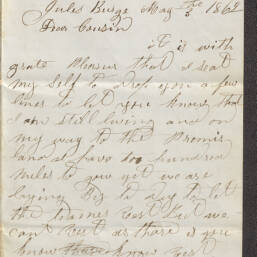 Jules Burge May the 5 1862
Dear Cousin
It is with
grate Plesur that I seat
my self to drop you a few
lines to let you know that
I am still living and on
my way to the Promis
land I have 100 hundred
miles to go yet we are
laying By to day to let
the teames rest But we
can't rest as there is you
know know rest